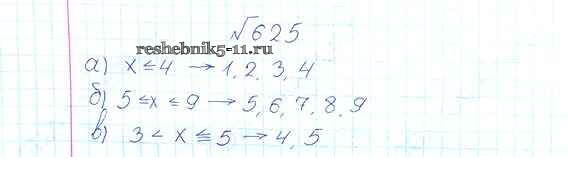 №625
reshebnik5-11.ru
а) x ≤ 4 → 1, 2, 3, 4
б) 5 ≤ x ≤ 9 → 5, 6, 7, 8, 9
в) 3 < x ≤ 5 → 4, 5